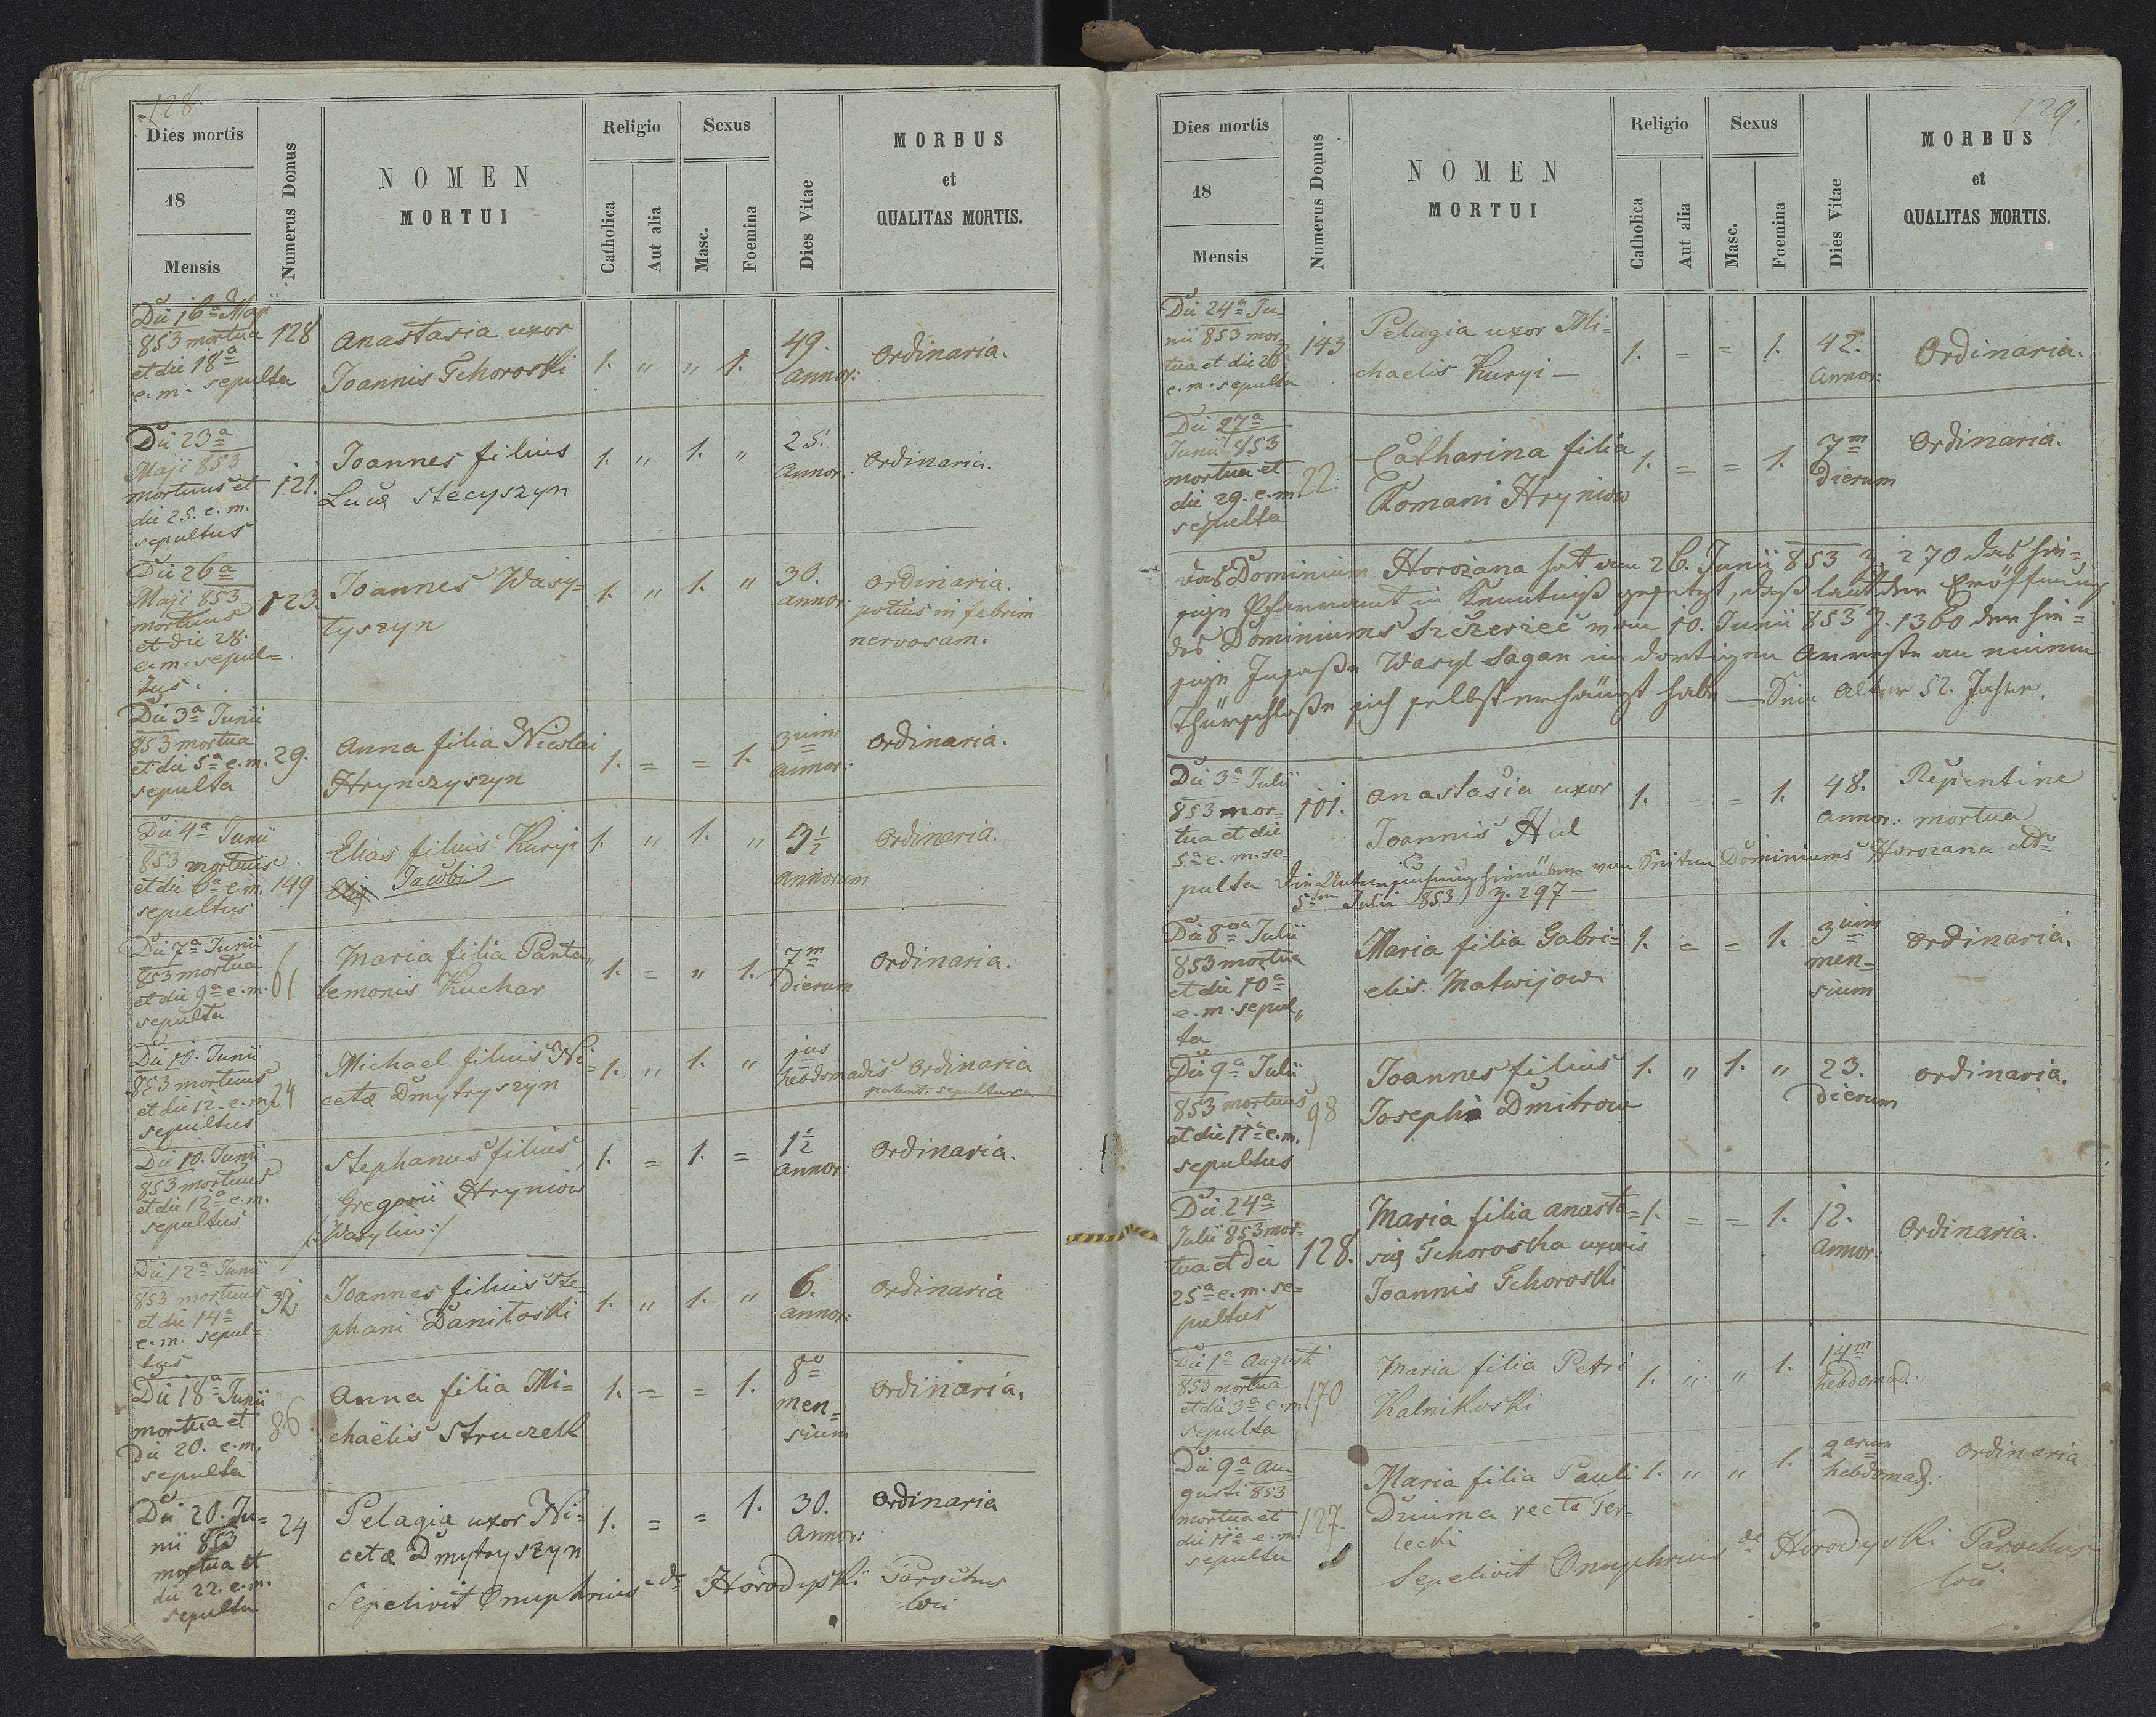 128.
Dies mortis
18
Mensis
Numerus Domus
NOMEN
MORTUI
Religio
Catholica
Aut alia
Sexus
Masc.
Foemina
Dies Vitae
MORBUS
et
QUALITAS MORTIS.
Die 16ª Maji
853 mortua
et die 18ª
e. m. sepulta
128
Anastasia uxor
Joannis Tchoroski
1. " " 1.
49.
annor:
Ordinaria.
Die 23ª
Maji 853
mortuus et
die 25. e. m.
sepultus
121.
Joannes filius
Lucæ Stecyszyn
1. " 1. "
25.
Annor:
Ordinaria.
Die 26ª
Maji 853
mortuus
et die 28.
e. m. sepul=
tus.
123.
Joannes Wasy=
tyszyn
1. " 1. "
30.
annor:
Ordinaria.
potius in febrim
nervosam.
Die 3ª Junii
853 mortua
et die 5ª e. m.
sepulta
29.
Anna filia Nicolai
Hrynczyszyn
1. = = 1.
3um
annor:
Ordinaria.
Die 4ª Junii
853 mortuus
et die 6ª e. m.
sepultus
149
Elias filius Kuryi
Jacobi
1. " 1. "
3½
annorum
Ordinaria.
Die 7ª Junii
853 mortua
et die 9ª e. m.
sepulta
61
Maria filia Panta"
lemonis Kuchar
1. = " 1.
7m
Dierum
Ordinaria.
Die 10. Junii
853 mortuus
et die 12. e. m.
sepultus
24
Michael filius Ni=
cetæ Dmytryszyn
1. " 1. "
jus
hebdomadis
Ordinaria
sepultura
Die 10. Junii
853 mortuus
et die 12ª e. m.
sepultus
Stephanus filius
Gregorii Hryniow
/:Wasyliw:/
1. = 1. =
1½
annor:
Ordinaria.
Die 12ª Junii
853 mortuus
et die 14ª
e. m. sepul=
tus
32
Joannes filius Ste=
phani Daniłoski
1. " 1. "
6.
annor:
Ordinaria
Die 18ª Junii
mortua et
die 20. e. m.
sepulta
86.
Anna filia Mi=
chaëlis Struczek
1. = = 1.
8o
men=
sium
Ordinaria.
Die 20. Ju=
nii 853
mortua et
die 22. e. m.
sepulta
24
Pelagia uxor Ni=
cetæ Dmytryszyn
1. = = 1.
30.
Annor:
Ordinaria
Sepelivit Onuphrius de Horodyski Parochus
loci
129.
Dies mortis
18
Mensis
Numerus Domus
NOMEN
MORTUI
Religio
Catholica
Aut alia
Sexus
Masc.
Foemina
Dies Vitae
MORBUS
et
QUALITAS MORTIS.
Die 24ª Ju=
nii 853 mor=
tua et die 26
e. m. sepulta
143
Pelagia uxor Mi=
chaelis Kuryi —
1. = = 1.
42.
Annor:
Ordinaria.
Die 27ª
Junii 853
mortua et
die 29. e. m.
sepulta
22.
Catharina filia
Romani Hryniow
1. = = 1.
7m
Dierum
Ordinaria.
Das Dominium Horożana hat am 26. Junii 853 Z. 270 das hie=
sige Pfarramt in Kenntniß gesetzt, daß laut der Eröffnung
des Dominiums Szczerzec vom 10. Junii 853 Z. 1360 der hie=
sige Insaße Wasyl Sagan im dortigen Arreste an einem
Thürschloße sich selbst erhängt habe — Sein Alter 52. Jahre.
Die 3ª Julii
853 mor=
tua et die
5ª e. m. se=
pulta
101.
Anastasia uxor
Joannis Hul
1. = = 1.
48.
annor:
Repentine
mortua
Die Untersuchung hierüber von Seiten Dominiums Horozana dto
5ten Julii 853 Z. 297 —
Die 8va Julii
853 mortua
et die 10ª
e. m. sepul"
ta
Maria filia Gabri=
elis Matwijow
1. = = 1.
3um
men=
sium
Ordinaria.
Die 9ª Julii
853 mortuus
et die 11ª e. m.
sepultus
98
Joannes filius
Josephi Dmitrow
1. " 1. "
23.
Dierum
Ordinaria.
Die 24ª
Julii 853 mor=
tua et die
25ª e. m. se=
pultus
128.
Maria filia Anasta=
siæ Tchoroska uxoris
Joannis Tchoroski
1. = = 1.
12.
Annor:
Ordinaria.
Die 1ª Augusti
853 mortua
et die 3ª e. m.
sepulta
170
Maria filia Petri
Kalnikoski
1. " " 1.
14m
hebdomad:
Die 9ª Au=
gusti 853
mortua et
die 11ª e. m.
sepulta
127.
Maria filia Pauli
Duuma recte Ter=
lecki
1. " " 1.
2arum
hebdomad:
Ordinaria
Sepelivit Onuphrius de Horodyski Parochus
loci